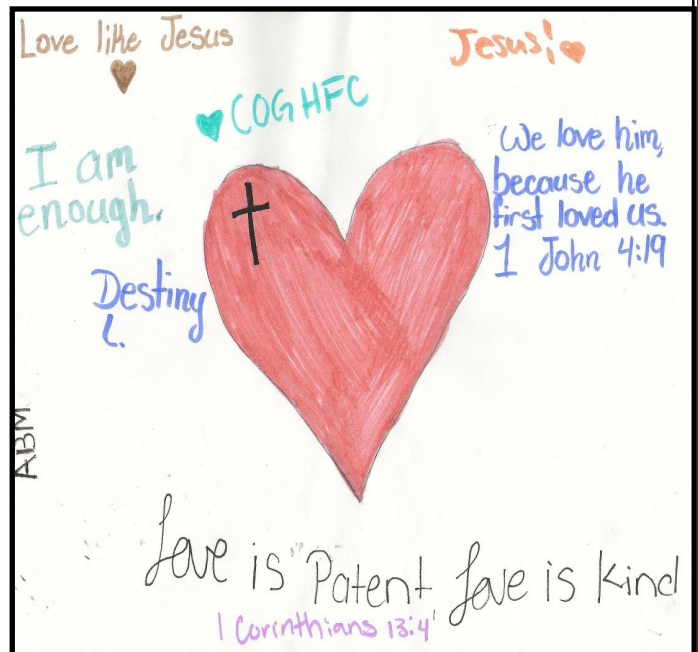 Love like Jesus
Jesus!
COGHFC
I am
enough.
We love him,
because he
first loved us.
1 John 4:19
Destiny
L.
ABM
Love is "Patent Love is Kind
1 Corinthians 13:4'